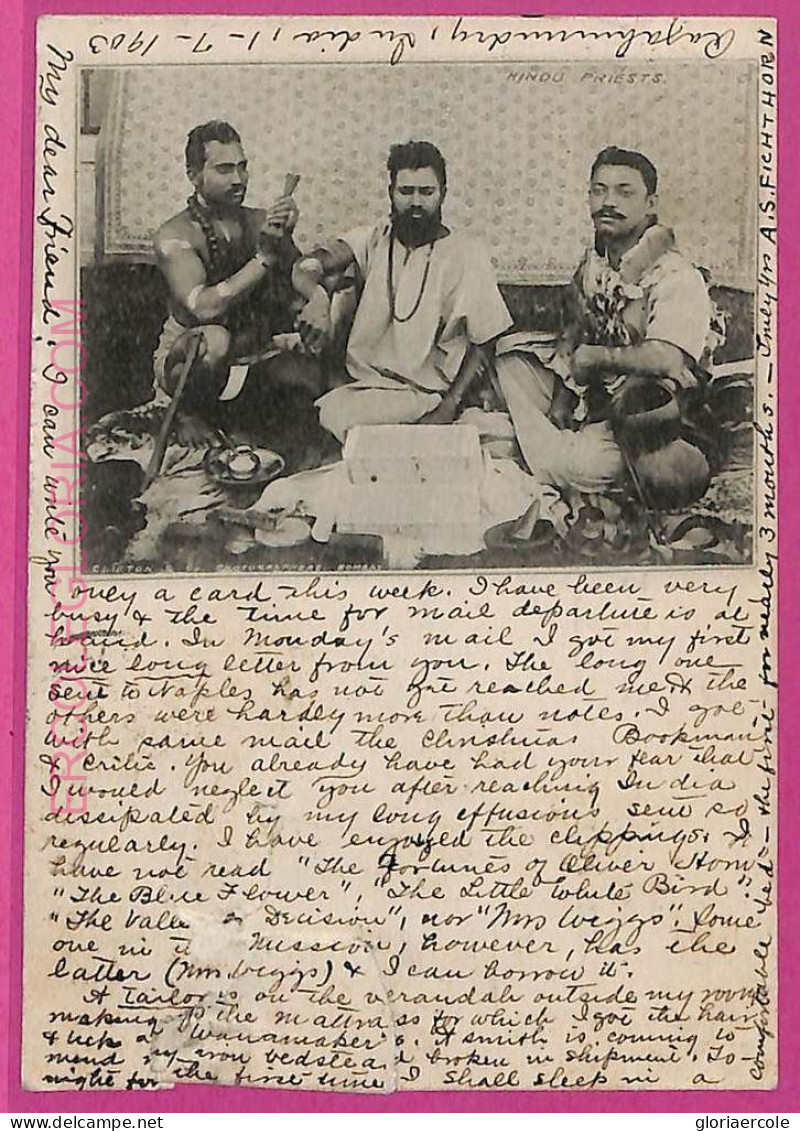 Rajahmundry, India, 1-7-1903
HINDU PRIESTS.
My dear Friend! I can write you
only a card this week. I have been very
busy & the time for mail departure is at
hand. In Monday's mail I got my first
nice long letter from you. The long one
sent to Naples has not yet reached me & the
others were hardly more than notes. I got
with same mail the Christmas Bookman
& Critic. You already have had your fear that
I would neglect you after reaching India
dissipated by my long effusions sent so
regularly. I have enjoyed the clippings. I
have not read "The Fortunes of Oliver Horn
"The Blue Flower", "The Little White Bird".
"The Valle or Decision", nor "Mrs Wiggs". Some
one in t Mission, however, has the
latter (Mrs Wiggs) & I can borrow it.
A tailor is on the verandah outside my room
making the mattrass for which I got the hair
& tick a Wanamaker's. A smith is coming to
mend my iron bedstead broken in shipment. To-
night for the first time I shall sleep in a
comfortable bed - the first for nearly 3 months. - Truly yrs A.S. FICHTHORN
CLIFTON & Co. PHOTOGRAPHERS, BOMBAY
ERCOLEGLORIA.COM
gloriaercole